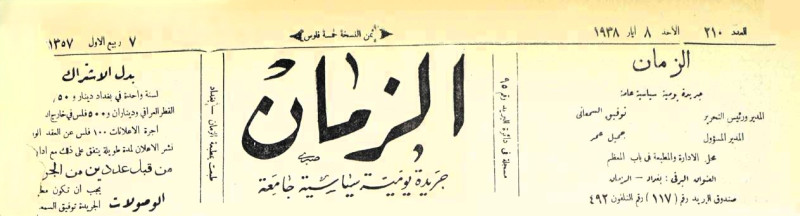 العدد ٢١٠
الاحد ٨ أيار ١٩٣٨
ثمن النسخة خمسة فلوس
٧ ربيع الاول ١٣٥٧
الزمان
جريدة يومية سياسية عامة
المدير ورئيس التحرير توفيق السمعاني
المدير المسؤول جميل عمر
محل الادارة والمطبعة في باب المعظم
العنوان البرقي : بغداد — الزمان
صندوق البريد رقم (١١٧) رقم التلفون ٤٩٢
مسجلة في دائرة البريد رقم ٩٥
الزمان
صبري
جريدة يومية سياسية جامعة
طبعت بمطبعة الزمان — بغداد
بدل الاشتراك
لسنة واحدة في بغداد دينار و ٥٠
القطر العراقي وديناران و ٥٠٠ فلس في خارج
اجرة الاعلانات ١٠٠ فلس عن العقد
نشر الاعلان لمدة طويلة يتفق على ذلك مع
من قبل عددين من
يجب ان تكون
الوصولات الجريدة توفيق